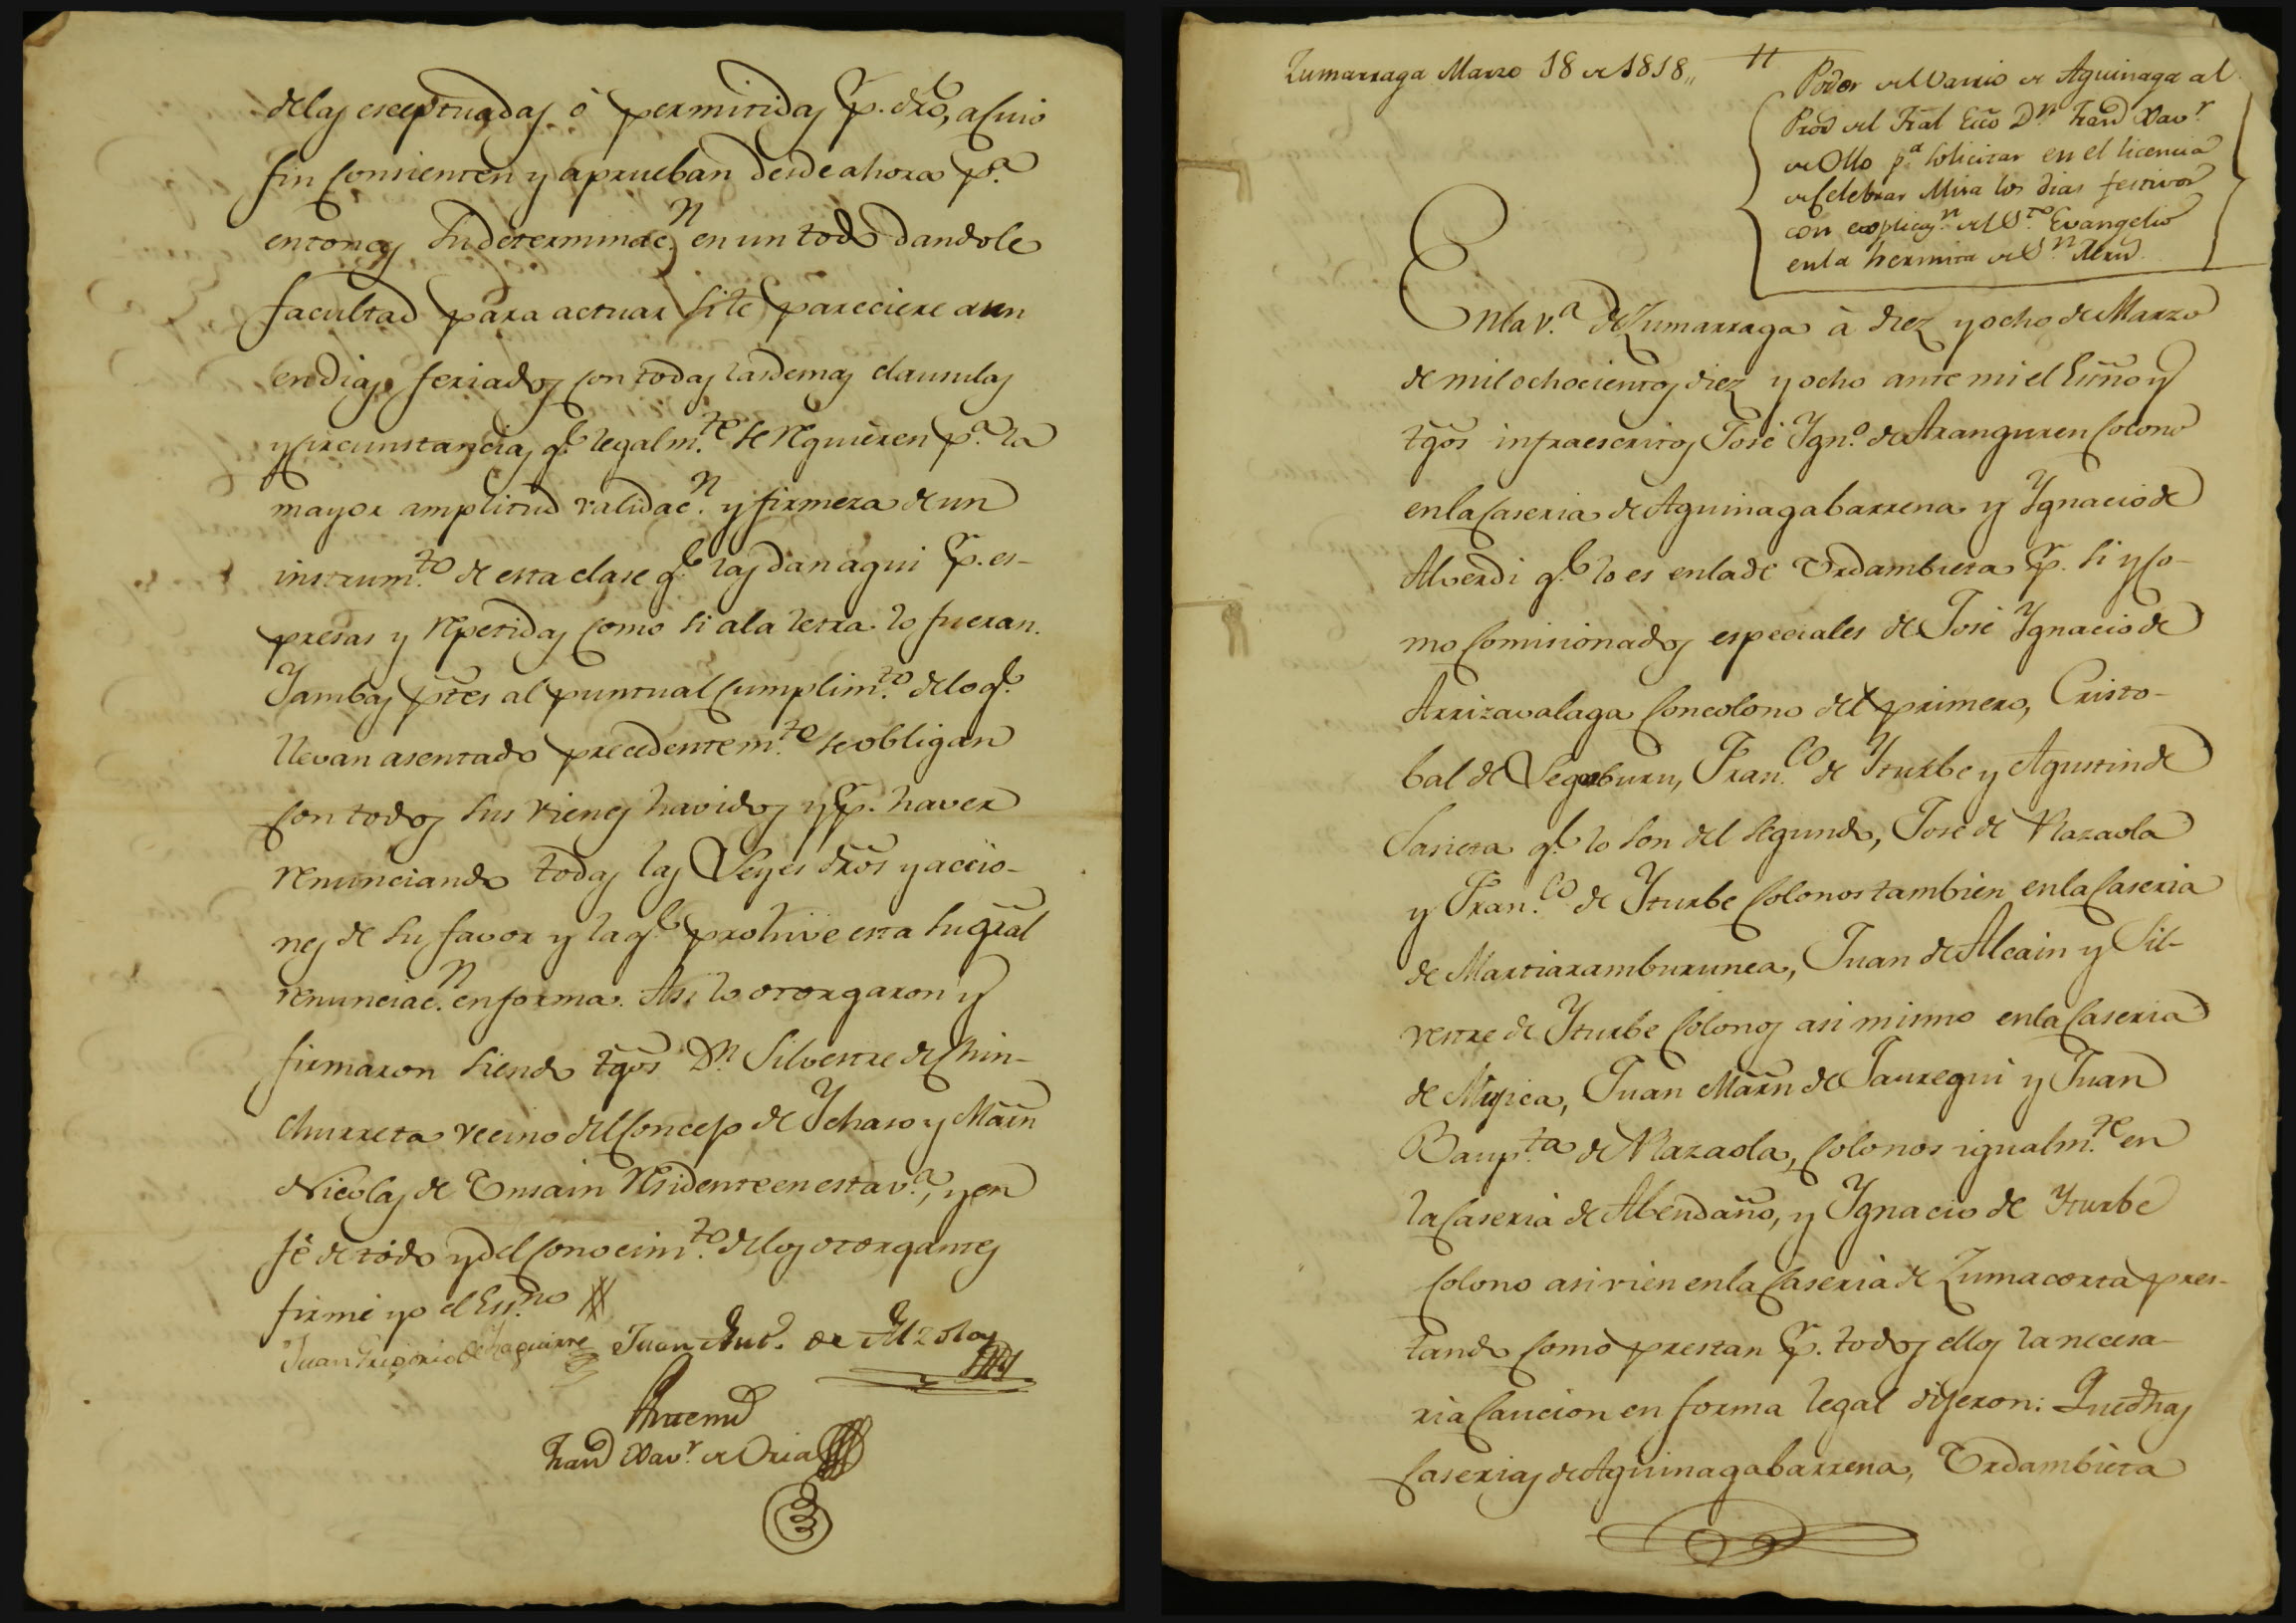 delas eseptuadas ó permitidas p.r dro, a cuio
fin consienten y aprueban desde ahora p.a
entonces su determinac.n en un todo dandole
facultad para actuar si le pareciere aun
en dias feriados con todas las demas clausulas
y circunstancias q.e legalm.te se requieren p.a la
mayor amplitud validac.n y firmeza de un
instrum.to de esta clase q.e las dan aqui p.r es-
presas y repetidas como si a la letra lo fueran.
Y ambas ptes al puntual cumplim.to de lo q.e
llevan asentado precedentem.te se obligan
con todos sus vienes havidos y p.r haver
renunciando todas las Leyes dros y accio-
nes de su favor y la q.e prohive esta su gral
renunciac.n en forma. Asi lo otorgaron y
firmaron siendo tgos D.n Silvestre de Chin-
churreta vecino del Concejo de Ychaso y Marn
Nicolas de Unsain residente en esta v.a, y en
fé de todo y del conocim.to de los otorgantes
firmé yo el Ess.no
Juan Gregorio de Yzaguirre Juan Ant.o de Alzola
Antemi
Fran.co Xav.r de Oria
Zumarraga Marzo 18 de 1818,,
Poder del Varrio de Aguinaga al
Procd del Tral Ecco D.n Franco Xav.r
de Ollo p.a solicitar en el licencia
de celebrar Misa los dias festivos
con explicaz.n del S.to Evangelio
en la hermita de S.n
En la v.a de Zumarraga à diez y ocho de Marzo
de mil ochocientos diez y ocho ante mi el Essno y
tgos infraescritos José Ygn.o de Aranguren colono
en la caseria de Aguinagabarrena y Ygnacio de
Alverdi q.e lo es en la de Urdambieta p.r si y co-
mo comisionados especiales de José Ygnacio de
Arrizavalaga concolono del primero, Cristo-
bal de Segaburu, Fran.co de Yturbe y Agustin de
Sasieta q.e lo son del segundo, José de Razaola
y Fran.co de Yturbe colonos tambien en la caseria
de Martiaramburunea, Juan de Alcain y Sil-
vestre de Yturbe colonos asi mismo en la caseria
de Mujica, Juan Marn de Jauregui y Juan
Baup.ta de Razaola, colonos igualm.te en
la caseria de Abendaño, y Ygnacio de Yturbe
colono asi vien en la caseria de Zumacorta pres-
tando como prestan p.r todos ellos la necesa-
ria caucion en forma legal dijeron: Que dhas
caserias de Aguinagabarrena, Urdambieta